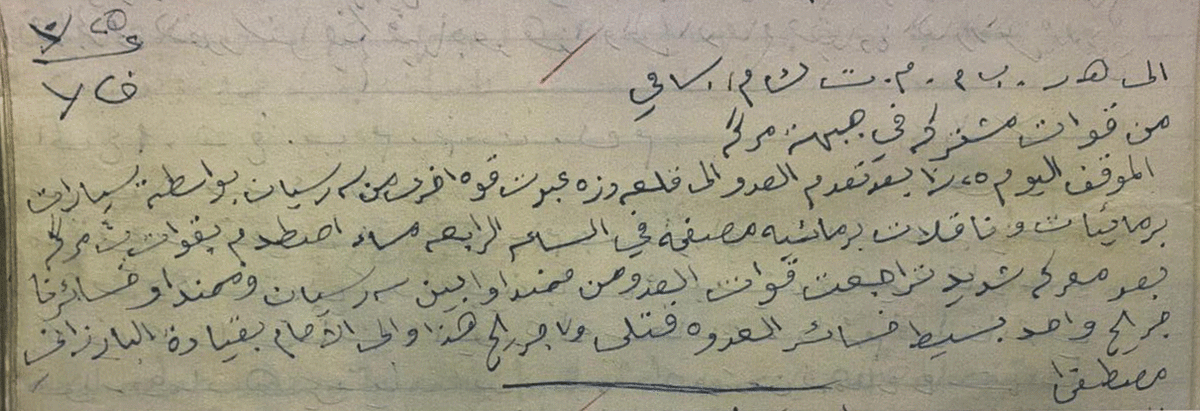 الى هـ ر. ب م. م. ت ك م/. سامي
ف ٧
من قوات مشتركه في جبهة مرگه
الموقف اليوم بعد تقدم العدو الى قلعه دزه عبرت قوه اخرى من سه رسيان بواسطة سيارات
برمائيات وناقلات برمائيه مصفحه في الساعه الرابعه مساء اصطدم بقوات پ مرگه
بعد معركه شديد تراجعت قوات العدو من ممندا و ابين سه رسيان وممندا و خسائرنا
جريح واحد بسيط خسائر العدو ٥ قتلى و٧ جريح هذا والى الأمام بقيادة البارزاني
مصطفى